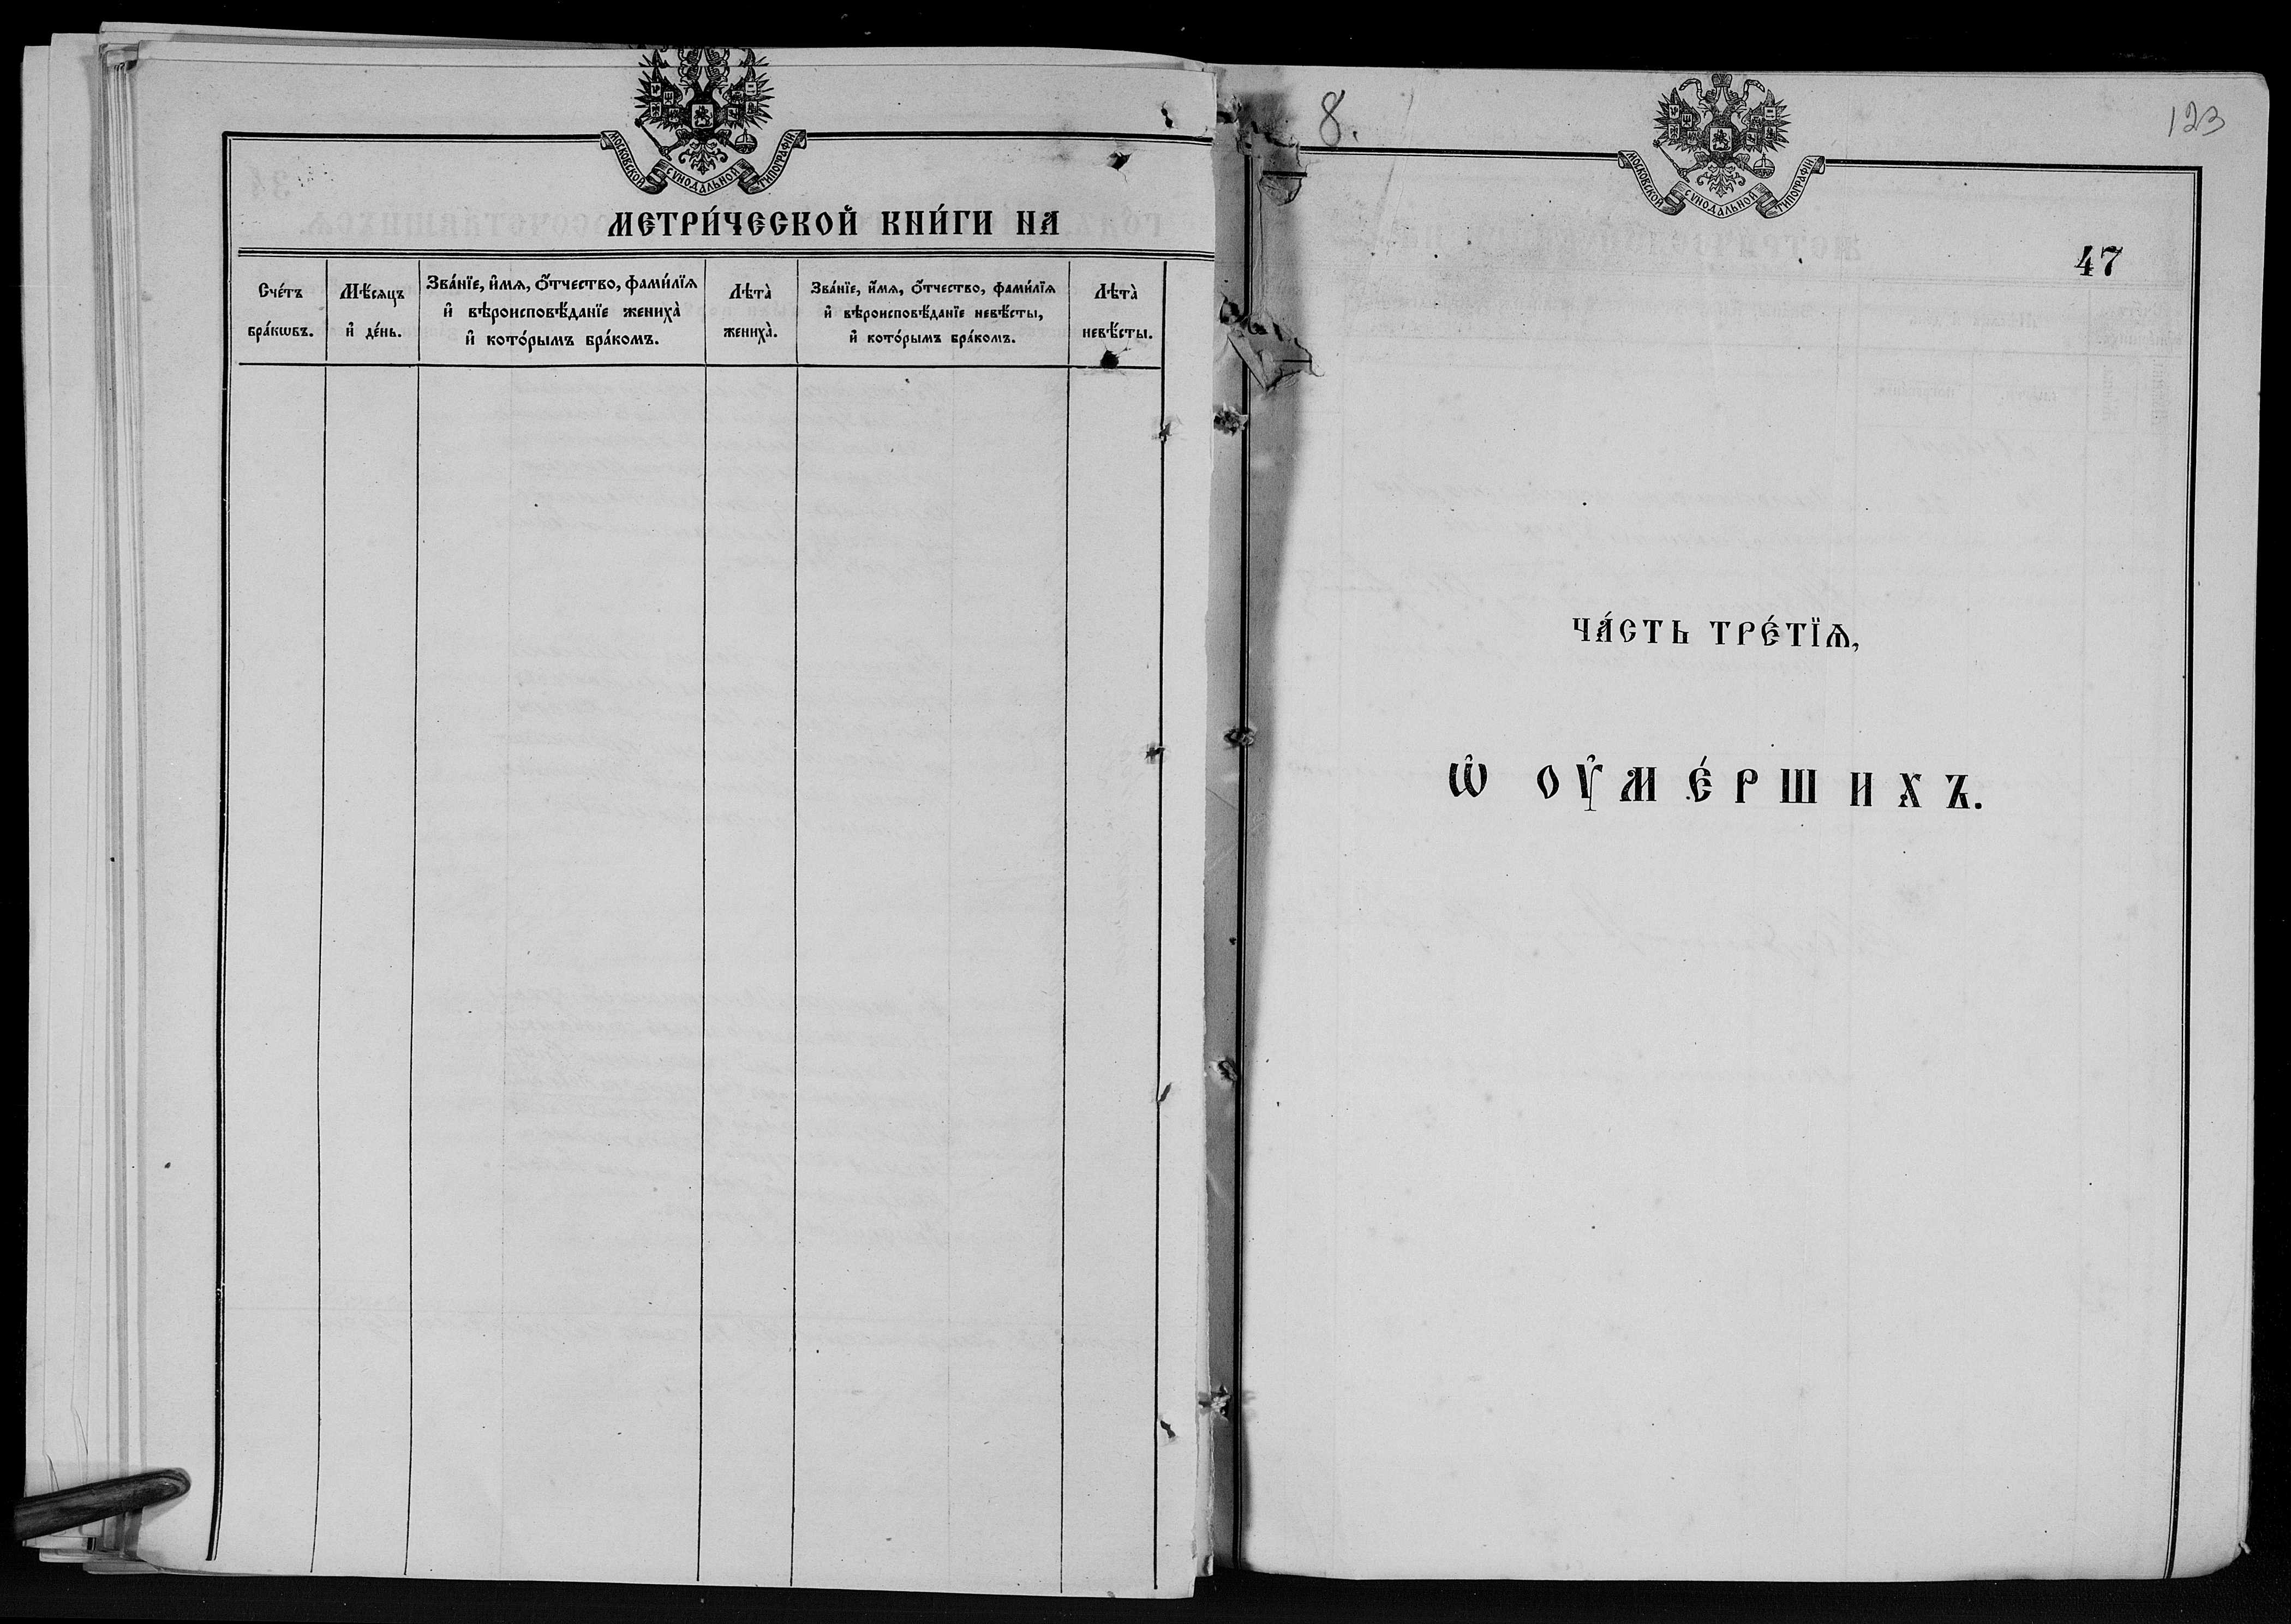 МОСКОВСКОЙ СѴНОДАЛЬНОЙ ТИПОГРАФІИ.
МЕТРИ́ЧЕСКОЙ КНИ́ГИ НА
Сче́тъ
бра́кѡвъ.
Мѣ́сяцъ
и҆ де́нь.
Зва́нїе, и҆́мѧ, ѻ҆́тчество, фами́лїѧ
и҆ вѣроисповѣ́данїе жениха̀
и҆ кото́рымъ бра́комъ.
Лѣта̀
жениха̀.
Зва́нїе, и҆́мѧ, ѻ҆́тчество, фами́лїѧ
и҆ вѣроисповѣ́данїе невѣ́сты,
и҆ кото́рымъ бра́комъ.
Лѣта̀
невѣ́сты.
8.
123
МОСКОВСКОЙ СѴНОДАЛЬНОЙ ТИПОГРАФІИ.
47
ЧА́СТЬ ТРЕ́ТЇѦ,
Ѡ҆ ОУ҆МЕ́РШИХЪ.